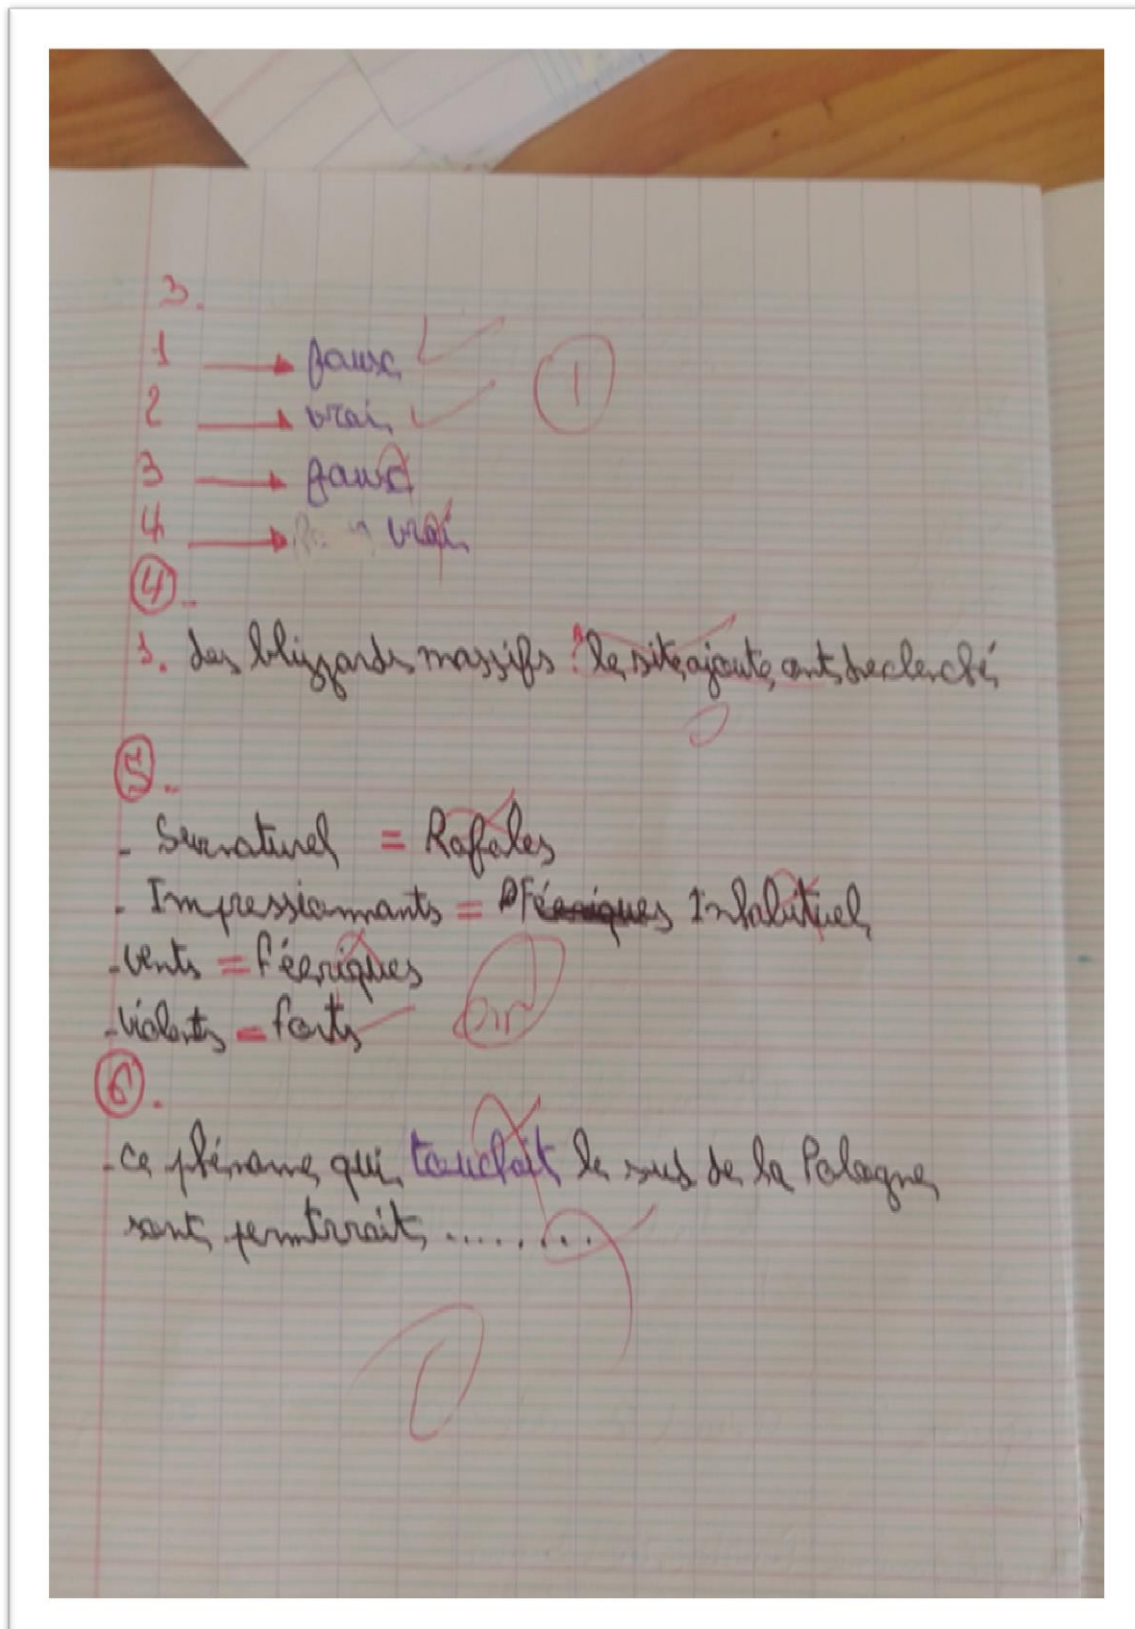 3.
1 → faux
2 → vrai
①
3 → faux
4 → vrai
④..
1. des blizzards massifs : le site ajoute, ont declenché
0
⑤..
- Surnaturel = Rafales
- Impressionnants = Inhabituel
- vents = féeriques
- violents = forts
⑥.
- ce phénome qui touchait le sud de la Pologne
sont ..........
0